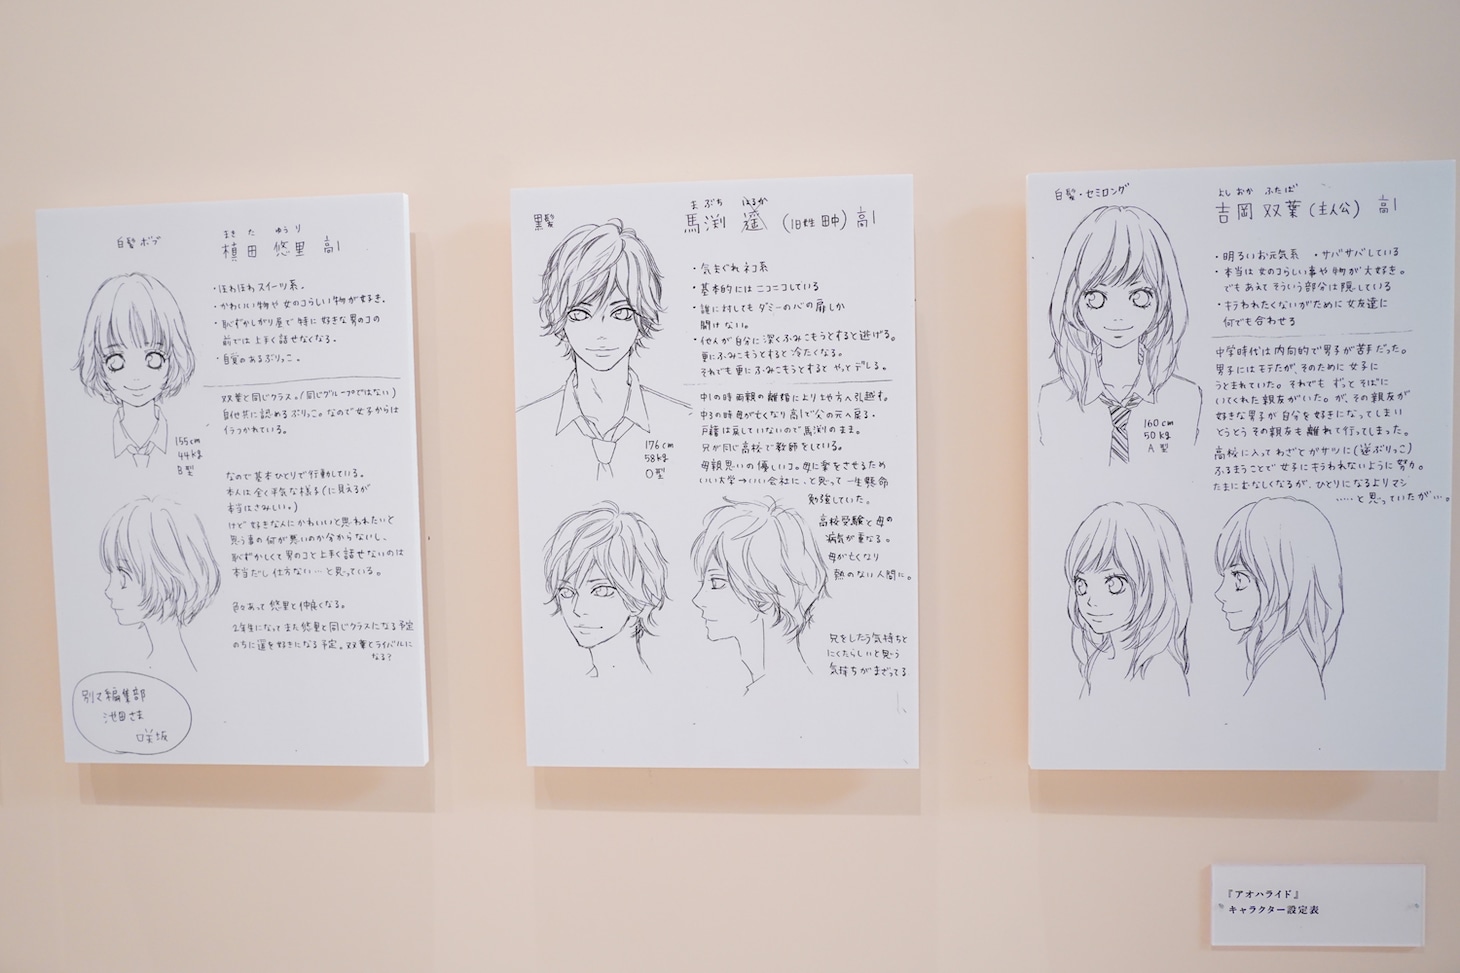 白髪 ボブ
まき た ゆう り
槙田 悠里 高1
・ほわほわスイーツ系。
・かわいい物や女のコらしい物が好き。
・恥ずかしがり屋で特に好きな男のコの
前では上手く話せなくなる。
・自覚のあるぶりっこ。
双葉と同じクラス。(同じグループではない)
自他共に認めるぶりっこ。なので女子からは
イラつかれている。
155cm
44kg
B型
なので基本ひとりで行動している。
本人は全く平気な様子(に見えるが
本当はさみしい。)
けど好きな人にかわいいと思われたいと
思う事の何が悪いのか分からないし、
恥ずかしくて男のコと上手く話せないのは
本当だし仕方ない…と思っている。
色々あって悠里と仲良くなる。
2年生になってまた悠里と同じクラスになる予定
のちに遥を好きになる予定。双葉とライバルに
なる?
別マ編集部
池田さま
咲坂
黒髪
ま ぶち はるか
馬渕 遥 (旧姓 田中) 高1
・気まぐれネコ系
・基本的にはニコニコしている
・誰に対してもダミーの心の扉しか
開けない。
・他人が自分に深くふみこもうとすると逃げる。
更にふみこもうとすると冷たくなる。
それでも更にふみこもうとするとやっとデレる。
中1の時両親の離婚により上や方へ引越す。
中3の時母が亡くなり高1で父の元へ戻る・
戸籍は戻していないので馬渕のまま。
兄が同じ高校で教師をしている。
母親思いの優しいコ。母に楽をさせるため
いい大学→いい会社に、と思って一生懸命
勉強していた。
176cm
58kg
O型
高校受験と母の
病気が重なる。
母が亡くなり
熱のない人間に。
兄をしたう気持ちと
にくたらしいと思う
気持ちがまざってる
白髪・セミロング
よし おか ふたば
吉岡 双葉 (主人公) 高1
・明るいお元気系 ・サバサバしている
・本当は女のコらしい事や物が大好き。
でもあえてそういう部分は隠している
・キラわれたくないがために女友達に
何でも合わせる
中学時代は内向的で男子が苦手だった。
男子にはモテたが、そのために女子に
うとまれていた。それでもずっとそばに
いてくれた親友がいた。が、その親友が
好きな男子が自分を好きになってしまい
とうとうその親友も離れて行ってしまった。
160cm
50kg
A型
高校に入ってわざとガサツに(逆ぶりっこ)
ふるまうことで女子にキラわれないように努力。
たまにむなしくなるが、ひとりになるよりマシ
……と思っていたが…。
『アオハライド』
キャラクター設定表